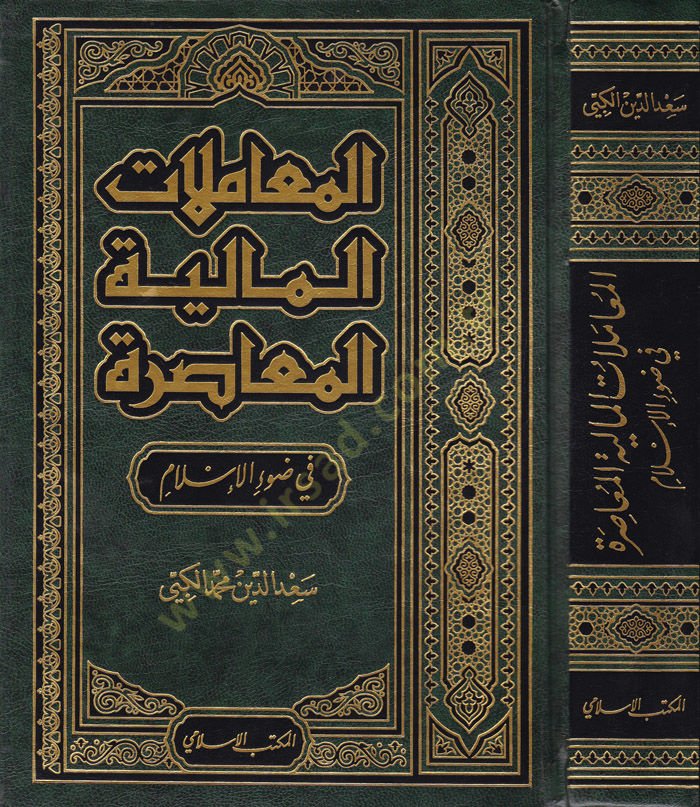 المعاملات
المالية
المعاصرة
في ضوءِ الإسْلَامِ
سَعْد الدِّين محمَّد الكبِّي
المكتب الإسلامي
سَعْد الدِّين الكبِّي
المُعَامَلَاتُ المَالِيَّة المُعَاصِرَة
في ضَوءِ الإسْلَامِ
المكتب الإسلامي
www.irsad.com